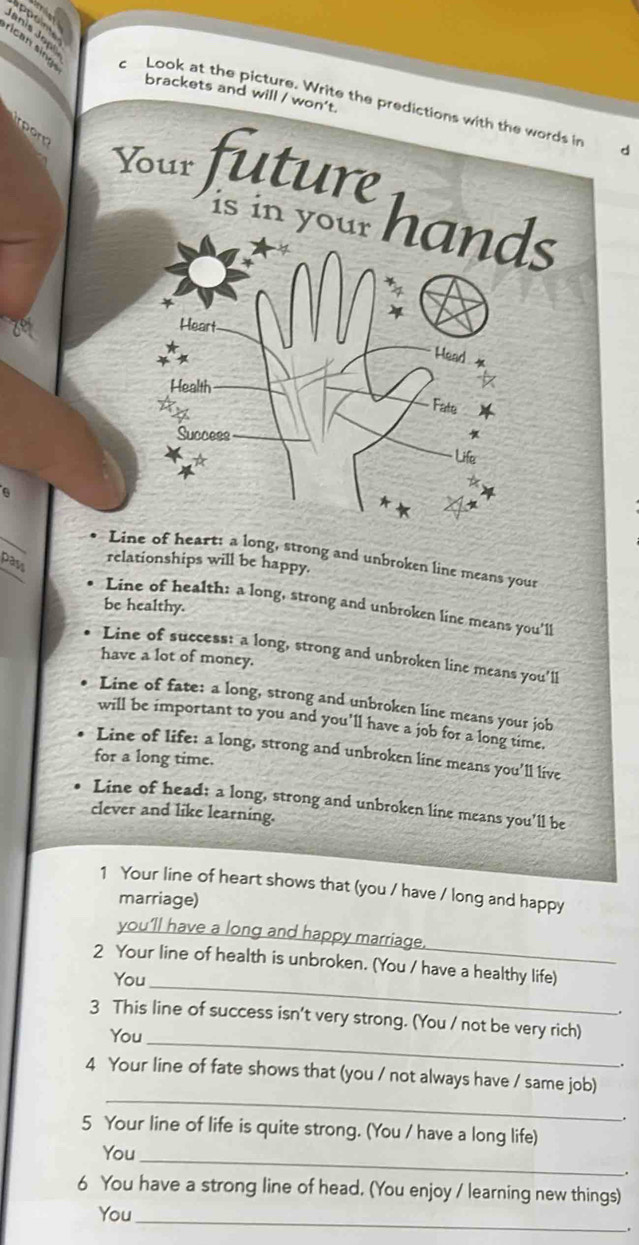 Janis Joplin
erican singer
c Look at the picture. Write the predictions with the words in
brackets and will / won't.
d
Your future
is in your hands
Heart
Head
Health
Fate
Success
Life
pass
• Line of heart: a long, strong and unbroken line means your
relationships will be happy.
• Line of health: a long, strong and unbroken line means you'll
be healthy.
• Line of success: a long, strong and unbroken line means you'll
have a lot of money.
• Line of fate: a long, strong and unbroken line means your job
will be important to you and you'll have a job for a long time.
• Line of life: a long, strong and unbroken line means you'll live
for a long time.
• Line of head: a long, strong and unbroken line means you'll be
clever and like learning.
1 Your line of heart shows that (you / have / long and happy
marriage)
you'll have a long and happy marriage.
2 Your line of health is unbroken. (You / have a healthy life)
You ______.
3 This line of success isn't very strong. (You / not be very rich)
You ______.
4 Your line of fate shows that (you / not always have / same job)
______.
5 Your line of life is quite strong. (You / have a long life)
You ______.
6 You have a strong line of head. (You enjoy / learning new things)
You ______.